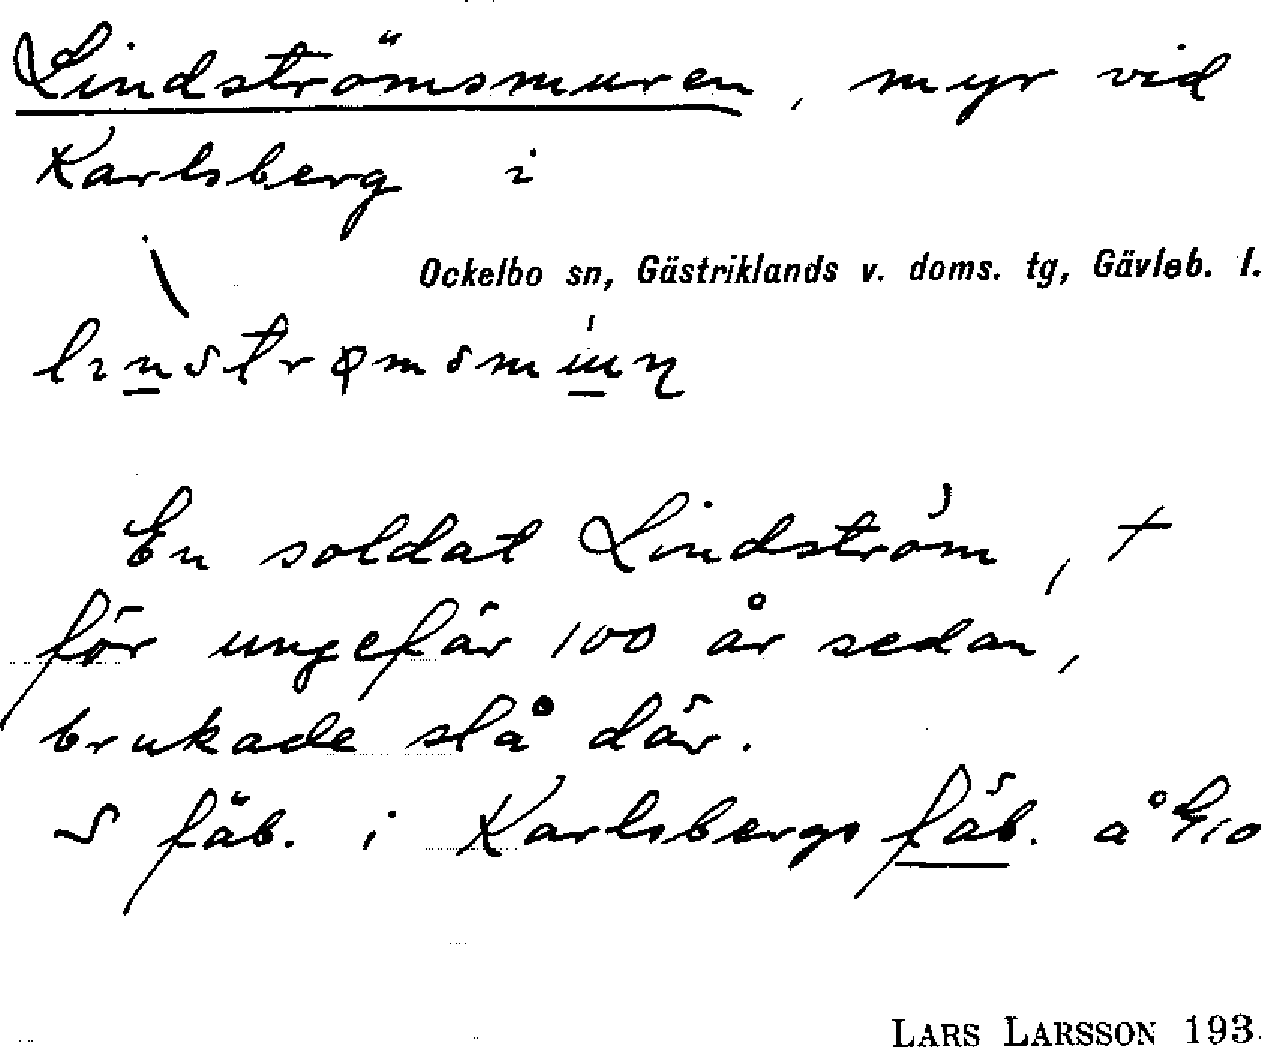 Lindströmsmuren, myr vid
Karlsberg i
Ockelbo sn, Gästriklands v. doms. tg, Gävleb. l.
En soldat Lindström, †
för ungefär 100 år sedan,
brukade slå där.
S fäb. i Karlsbergs fäb. å
LARS LARSSON 193.